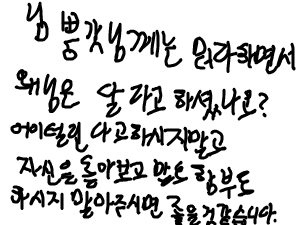 님 뽕갓님께는 뭐라하면서
왜님은 달 라고 하셨나요?
어이털린 다고하시지말고
자신을 돌아보고 말도 함부로
하시지 말아주시면 좋을것같습니다.